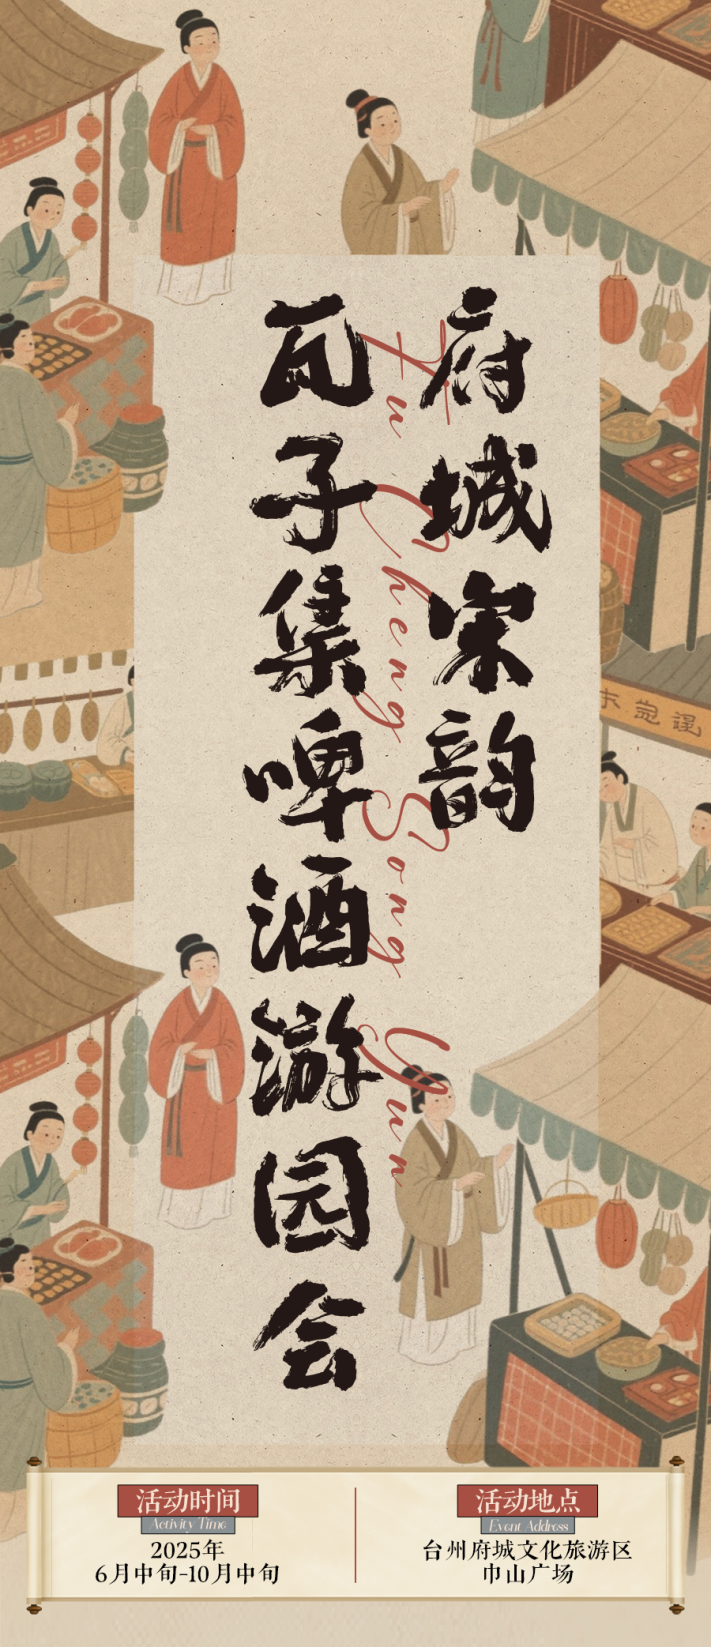 府城宋韵
瓦子集啤酒游园会
Fu Cheng Song Yun
活动时间
Activity Time
2025年
6月中旬-10月中旬
活动地点
Event Address
台州府城文化旅游区
巾山广场